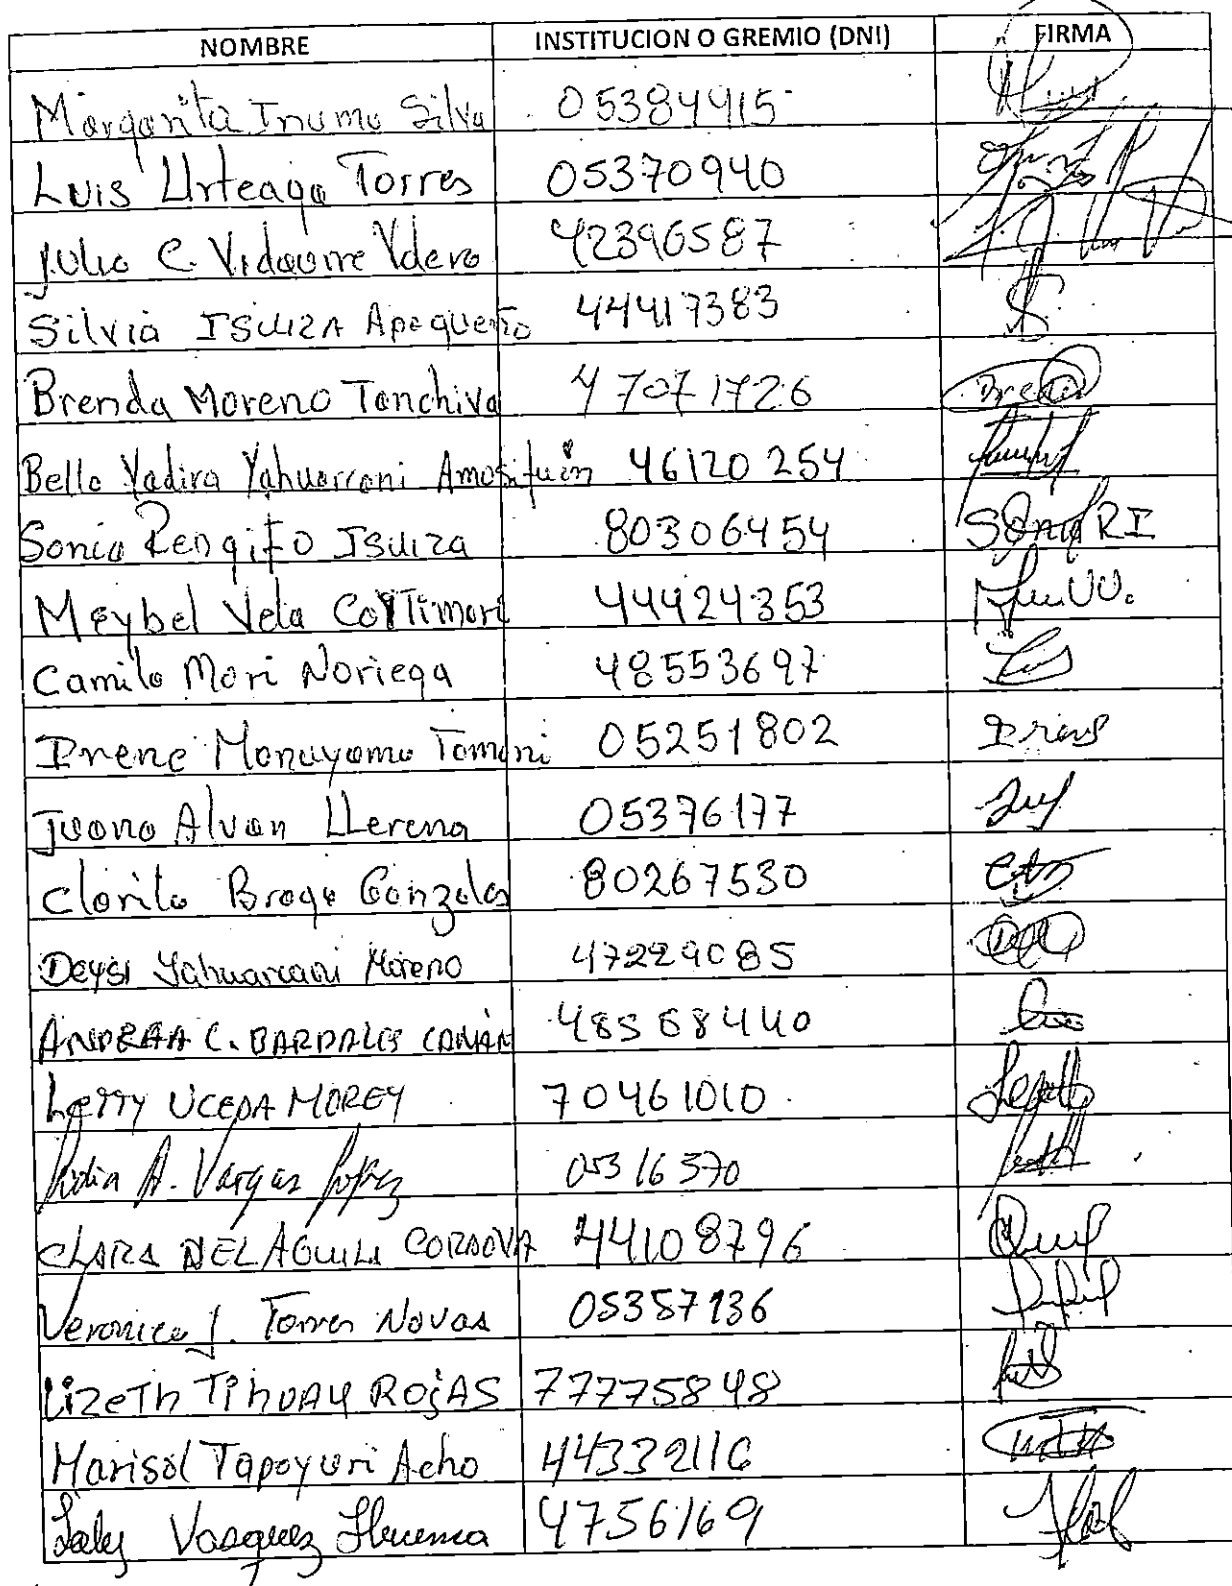 NOMBRE INSTITUCION O GREMIO (DNI) FIRMA
Margarita Inuma Silva 05384915
Luis Urteaga Torres 05370940
Julio C. Vidaurre Valera 42396587
Silvia ISUIZA Apagueño 44417383
Brenda Moreno Tanchiva 47071726
Bella Yadira Yahuarcani Amasifuén 46120254
Sonia Rengifo Isuiza 80306454 Sonia RI
Meybel Vela 44424353
Camila Mori Noriega 48553697
Irene Manuyama Tamani 05251802
Juana Alvan Llerena 05376177
Clarita Braga Gonzales 80267530
Deysi Yahuarcani Moreno 47229085
ANDREA C. BARDALES 48568440
Letty UCEDA MOREY 70461010
Lidia A. Vargas López 05316370
CLARA DEL AGUILA CORDOVA 44108796
Veronica J. Torres Novoa 05357136
Lizeth TihuAy RojAS 77775848
Marisol Tapayuri Acho 44332116
Vasquez 4756169